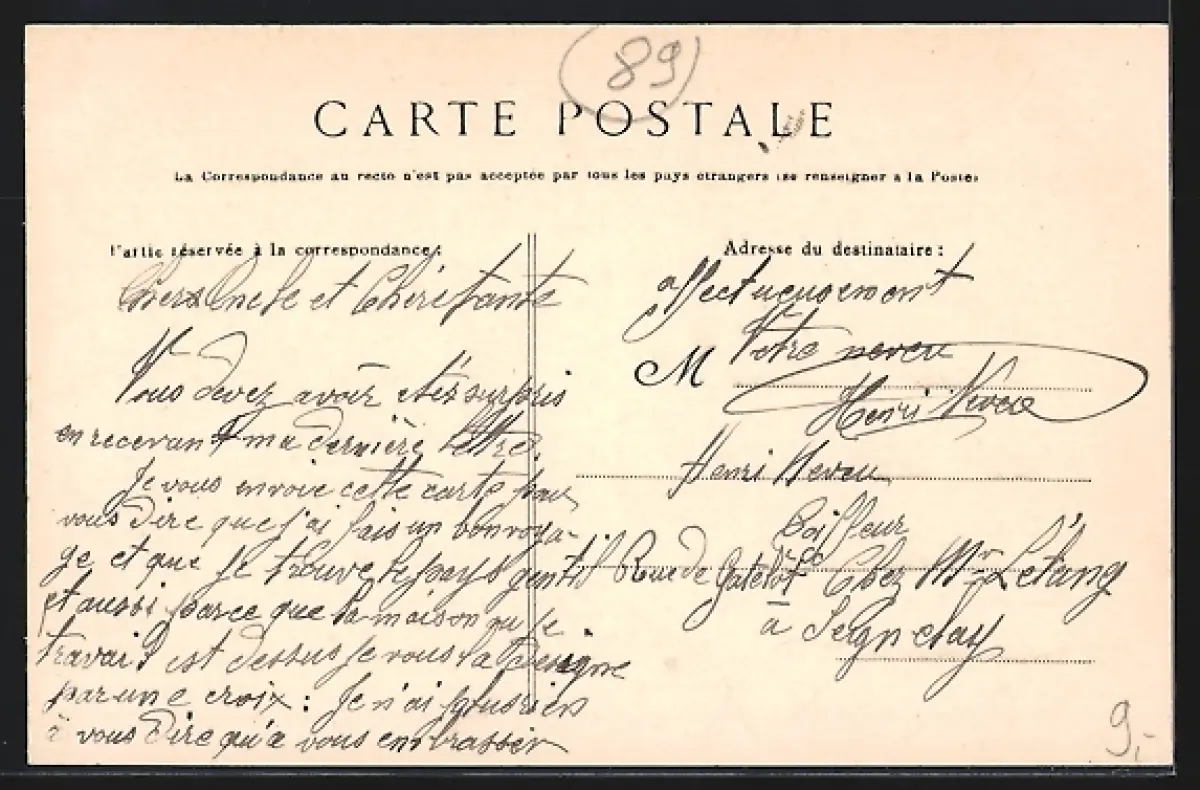 (89)
CARTE POSTALE
La Correspondance au recto n'est pas acceptée par tous les pays étrangers (se renseigner à la Poste)
Partie réservée à la correspondance:
Chers Oncle et Chéri tante
Vous devez avoir etés surpris
en recevant ma dernière lettre.
Je vous envoie cette carte pour
vous dire que j'ai fais un bon voya-
ge et que je trouve le pays gentil
et aussi parce que la maison ou je
travail est dessus je vous la désigne
par une croix: Je n'ai plus rien
à vous dire qu'a vous embrasser
Adresse du destinataire:
affectueusement
M Votre neveu
Henri Neveu
Henri Neveu
Coiffeur
Rue de Chez Mr Létang
à Seignelay
9,-